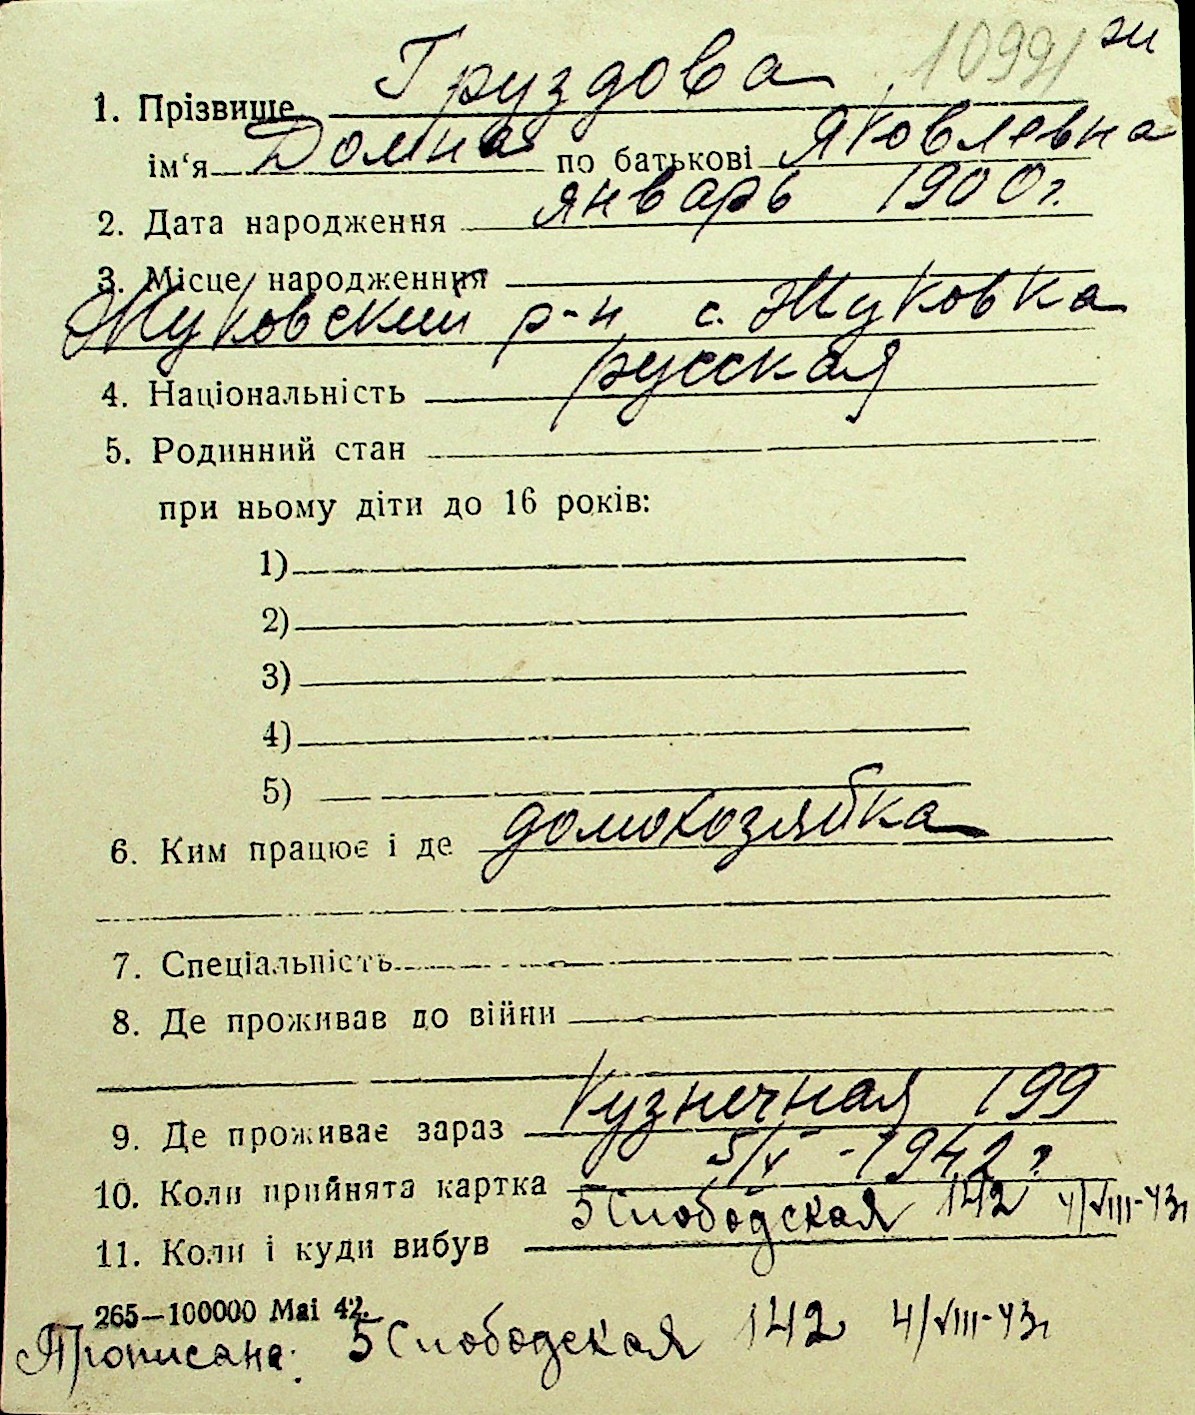 10991 ж
1. Прізвище Груздова
ім‘я Домна по батькові Яковлевна
2. Дата народження январь 1900 г.
3. Місце народженння
Жуковский р-н с. Жуковка
4. Національність русская
5. Родинний стан
при ньому діти до 16 років:
1)
2)
3)
4)
5)
6. Ким працює і де домохозяйка
7. Спеціальність
8. Де проживав до війни
9. Де проживає зараз Кузнечная 199
10. Коли прийнята картка 5/V - 1942 г.
11. Коли і куди вибув 5 Слободская 142 4/VIII-43г
265—100000 Mai 42.
Прописана: 5 Слободская 142 4/VIII-43г